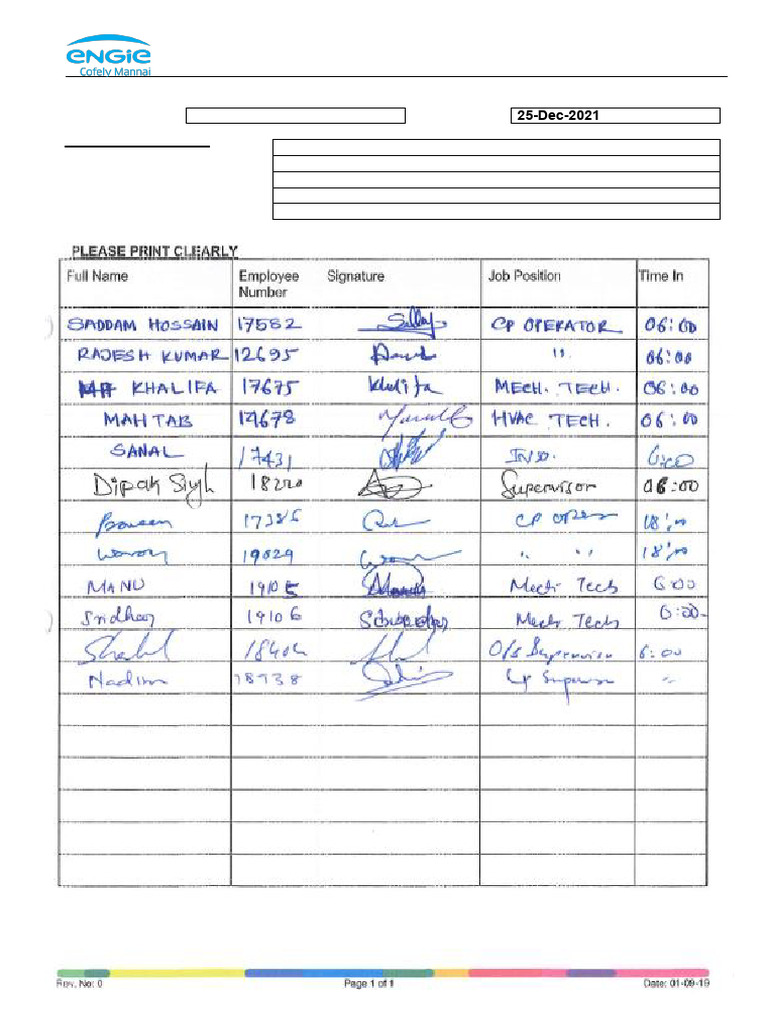 ENGIE
Cofely Mannai
25-Dec-2021
PLEASE PRINT CLEARLY
Full Name Employee Number Signature Job Position Time In
SADDAM HOSSAIN 17582 CP OPERATOR 06:00
RAJESH KUMAR 12695 " 06:00
KHALIFA 17675 Khalifa MECH. TECH. 06:00
MAHTAB 14678 HVAC TECH. 06:00
SANAL 17431 6:00
Dipak Sigh 18220 Supervisor 06:00
Praveen 17385 CP Oper 18:00
19029 " " 18:00
MANU 1910 Mech Tech 6:00
Sridhar 19106 Mech Tech 6:00
O/S Supervisor 6:00
Nadim 18938 Cp Supervisor "
Rev. No: 0 Page 1 of 1 Date: 01-09-19